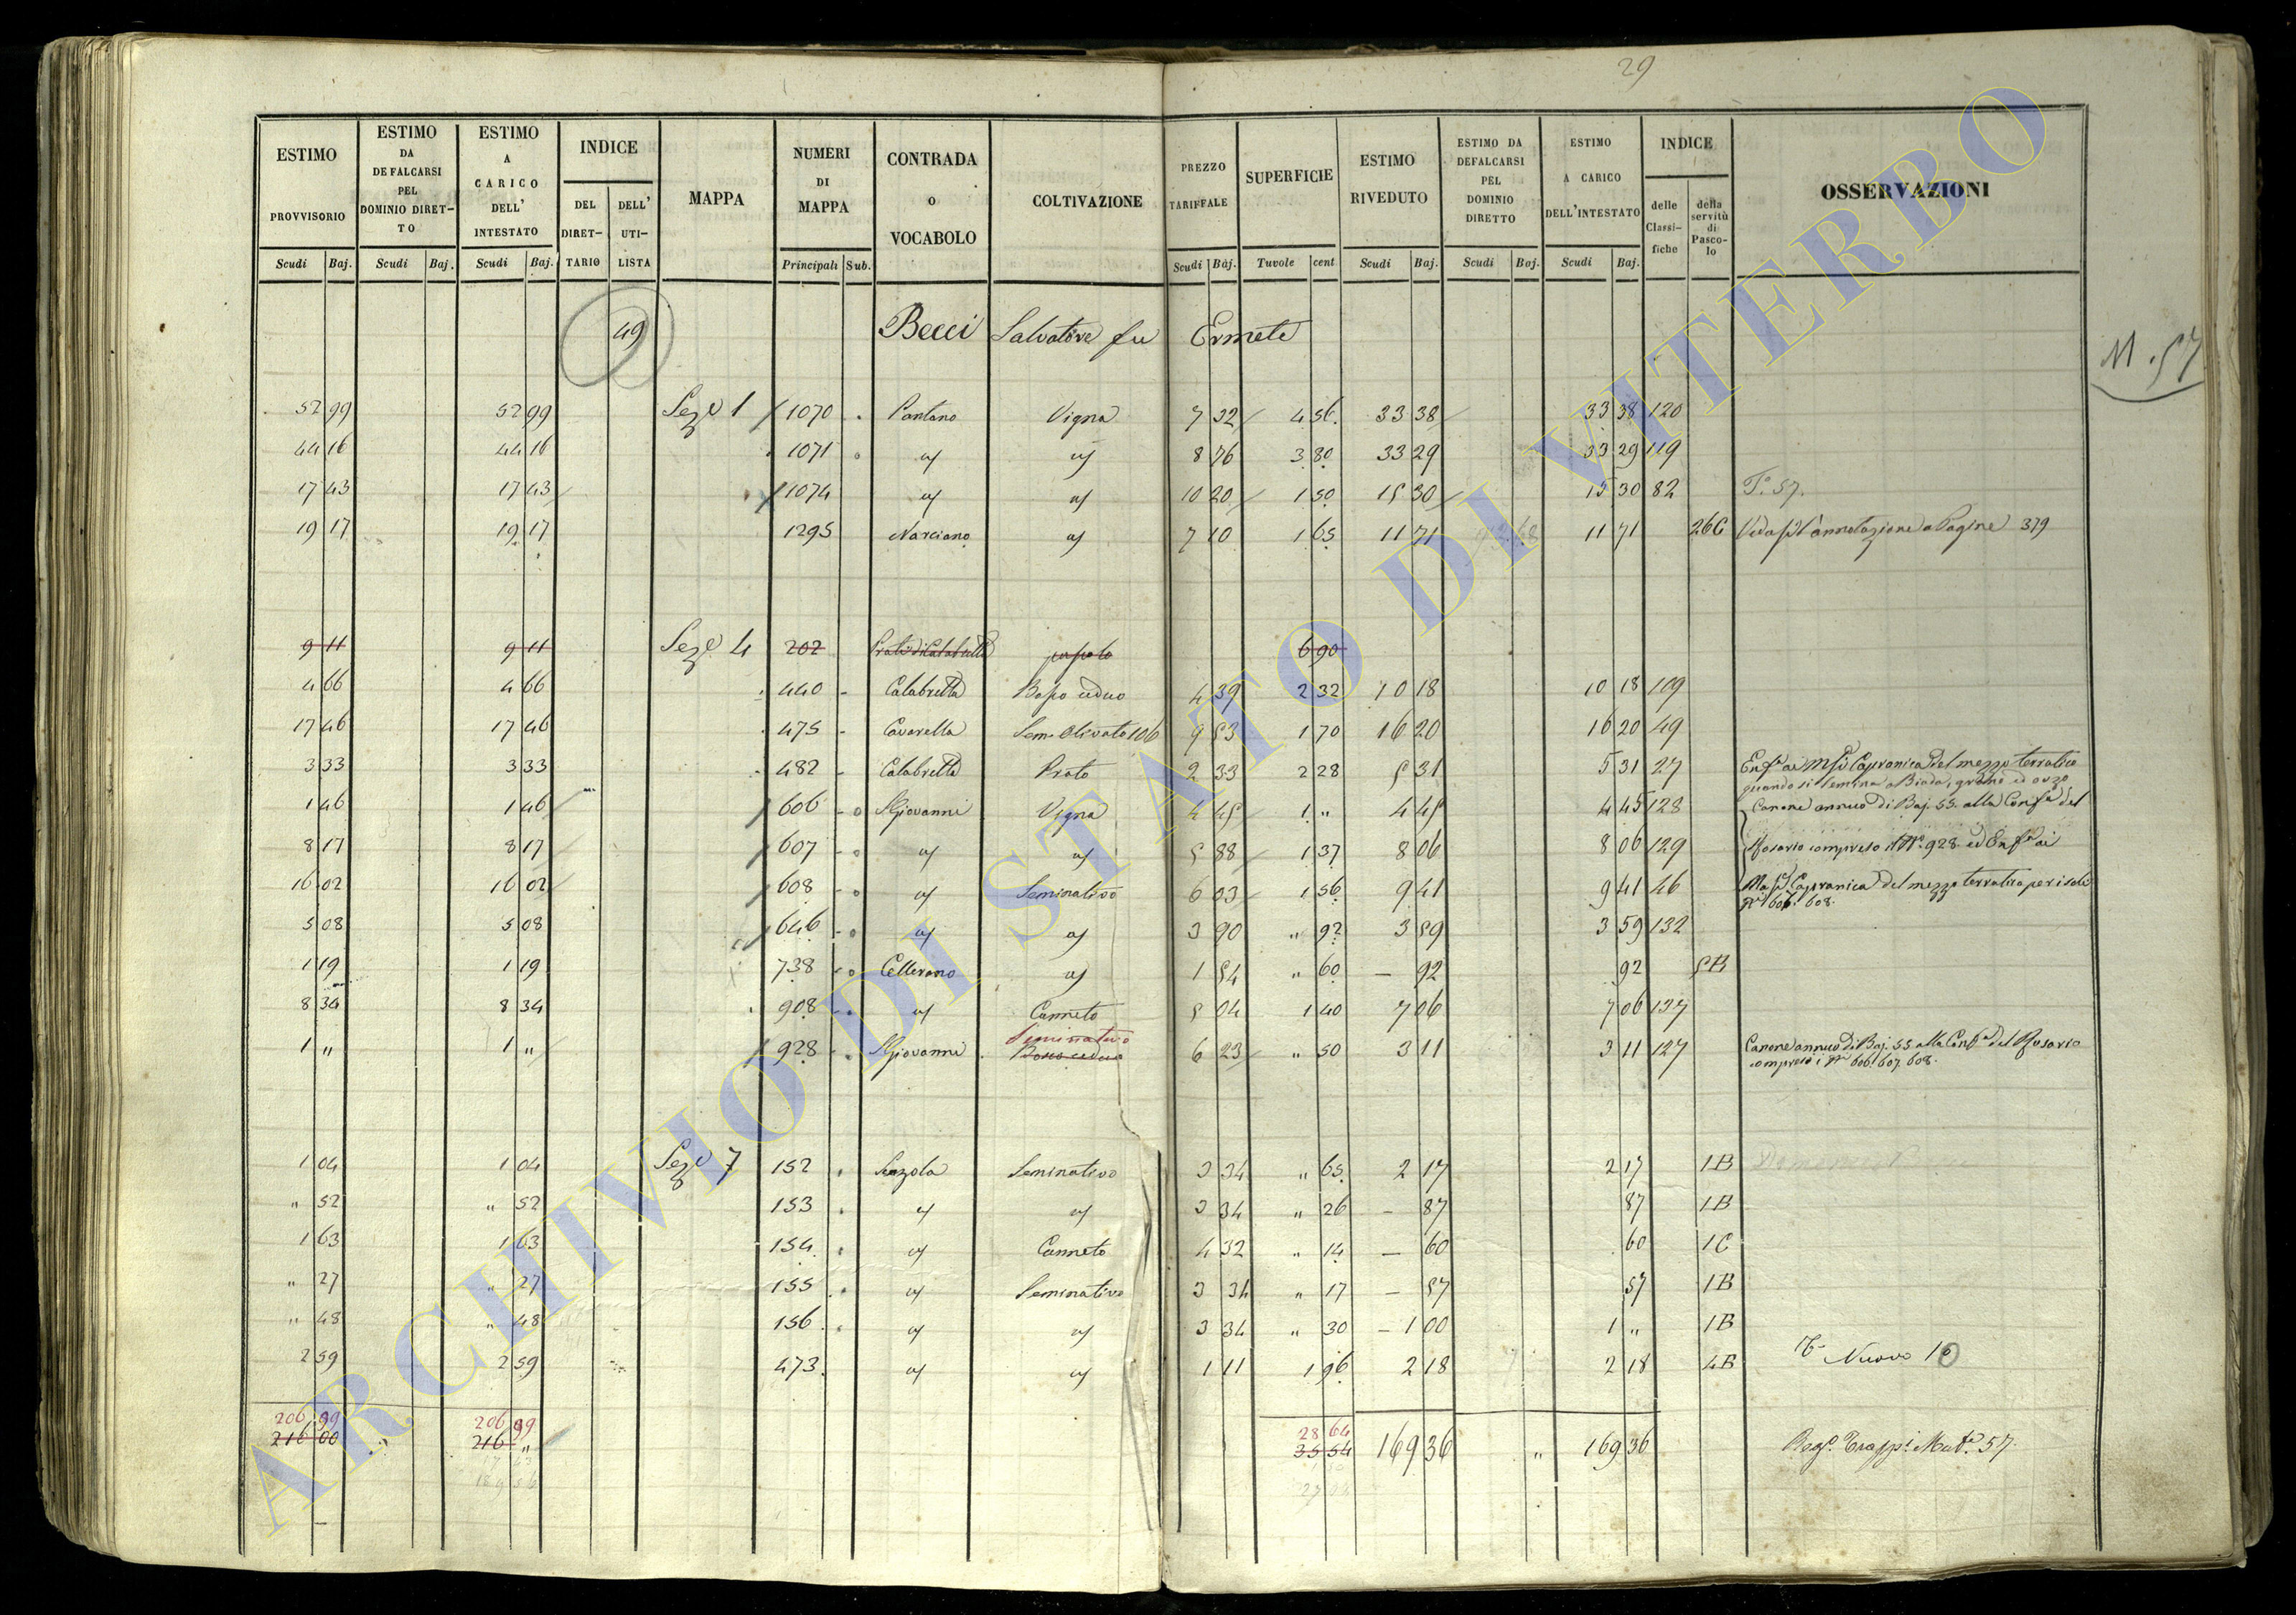 29
ESTIMO PROVVISORIO Scudi Baj.
ESTIMO DA DEFALCARSI PEL DOMINIO DIRET-TO Scudi Baj.
ESTIMO A CARICO DELL' INTESTATO Scudi Baj.
INDICE DEL DIRET-TARIO DELL' UTI-LISTA
MAPPA
NUMERI DI MAPPA Principali Sub.
CONTRADA o VOCABOLO
COLTIVAZIONE
PREZZO TARIFFALE Scudi Baj.
SUPERFICIE Tavole cent
ESTIMO RIVEDUTO Scudi Baj.
ESTIMO DA DEFALCARSI PEL DOMINIO DIRETTO Scudi Baj.
ESTIMO A CARICO DELL'INTESTATO Scudi Baj.
INDICE delle Classi-fiche della servitù di Pasco-lo
OSSERVAZIONI
49 Becci Salvatore fu Ermete
M. 57
52 99 52 99 Seze 1 1070 Pantano Vigna 7 32 4 56 33 38 33 38 120
44 16 44 16 1071 " " 8 76 3 80 33 29 33 29 119
17 43 17 43 1074 " " 10 20 1 50 15 30 15 30 82 To. 57.
19 17 19 17 1295 Narciano " 7 10 1 65 11 71 11 71 26C Vedasi l'annotazione a Pagine 379
9 11 9 11 Seze 4 202 Prato di Calabrella pascolo 6 90
4 66 4 66 440 Calabrella Bosco ceduo 4 39 2 32 10 18 10 18 109
17 46 17 46 475 Cavarella Sem. Olivato 106 9 53 1 70 16 20 16 20 49
3 33 3 33 482 Calabrella Prato 2 33 2 28 5 31 5 31 27 Enfa. ai Capranica del mezzo terratico
quando si semina a Biada, grano ed orzo
1 46 1 46 606 S Giovanni Vigna 4 45 1 " 4 45 4 45 128 Canone annuo di Baj. 55. alla Confa. del
8 17 8 17 607 " " 5 88 1 37 8 06 8 06 129 Rosario compreso il No. 928 ed Enfa. ai
16 02 16 02 608 " Seminativo 6 03 1 56 9 41 9 41 46 Capranica del mezzo terratico per i soli
Ni. 606. 608.
5 08 5 08 646 " " 3 90 " 92 3 59 3 59 132
1 19 1 19 738 Cellerano " 1 54 " 60 — 92 92 5B
8 34 8 34 908 " Canneto 5 04 1 40 7 06 7 06 137
Seminativo
1 " 1 " 928 S Giovanni Bosco ceduo 6 23 " 50 3 11 3 11 127 Canone annuo di Baj. 55 alla Confa. del Rosario
compresi i Ni. 606. 607. 608.
1 04 1 04 Seze 7 152 Seminativo 3 34 " 65 2 17 2 17 1B
" 52 " 52 153 " " 3 34 " 26 — 87 87 1B
1 63 1 63 154 " Canneto 4 32 " 14 — 60 60 1C
" 27 " 27 155 " Seminativo 3 34 " 17 — 57 57 1B
" 48 " 48 156 " " 3 34 " 30 — 1 00 1 " 1B
2 59 2 59 473 " " 1 11 1 96 2 18 2 18 4B Nuovo 10
206 99 206 99 28 64
216 00 216 " 35 54 169 36 " 169 36 Rego. Trappi. Mute. 57
ARCHIVIO DI STATO DI VITERBO